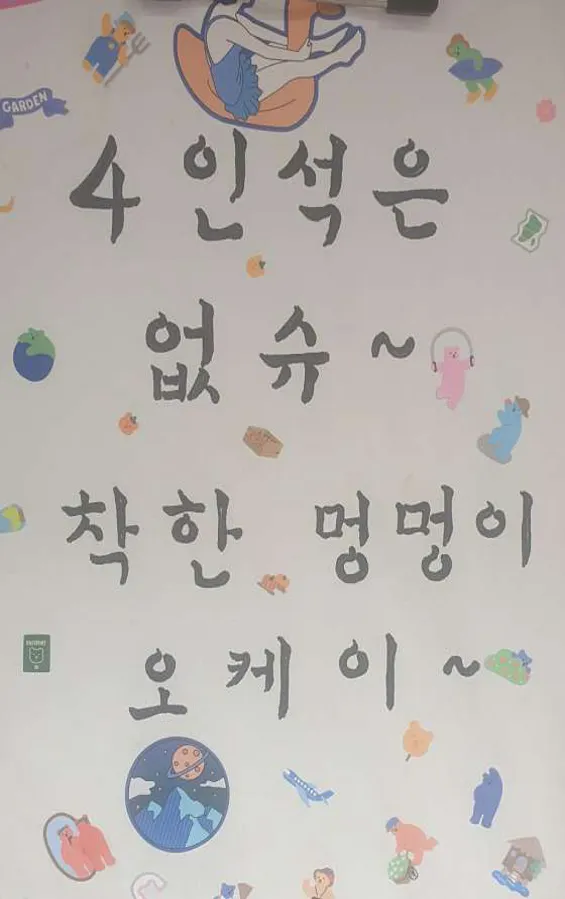 GARDEN
4인석은
없슈~
착한 멍멍이
오케이~